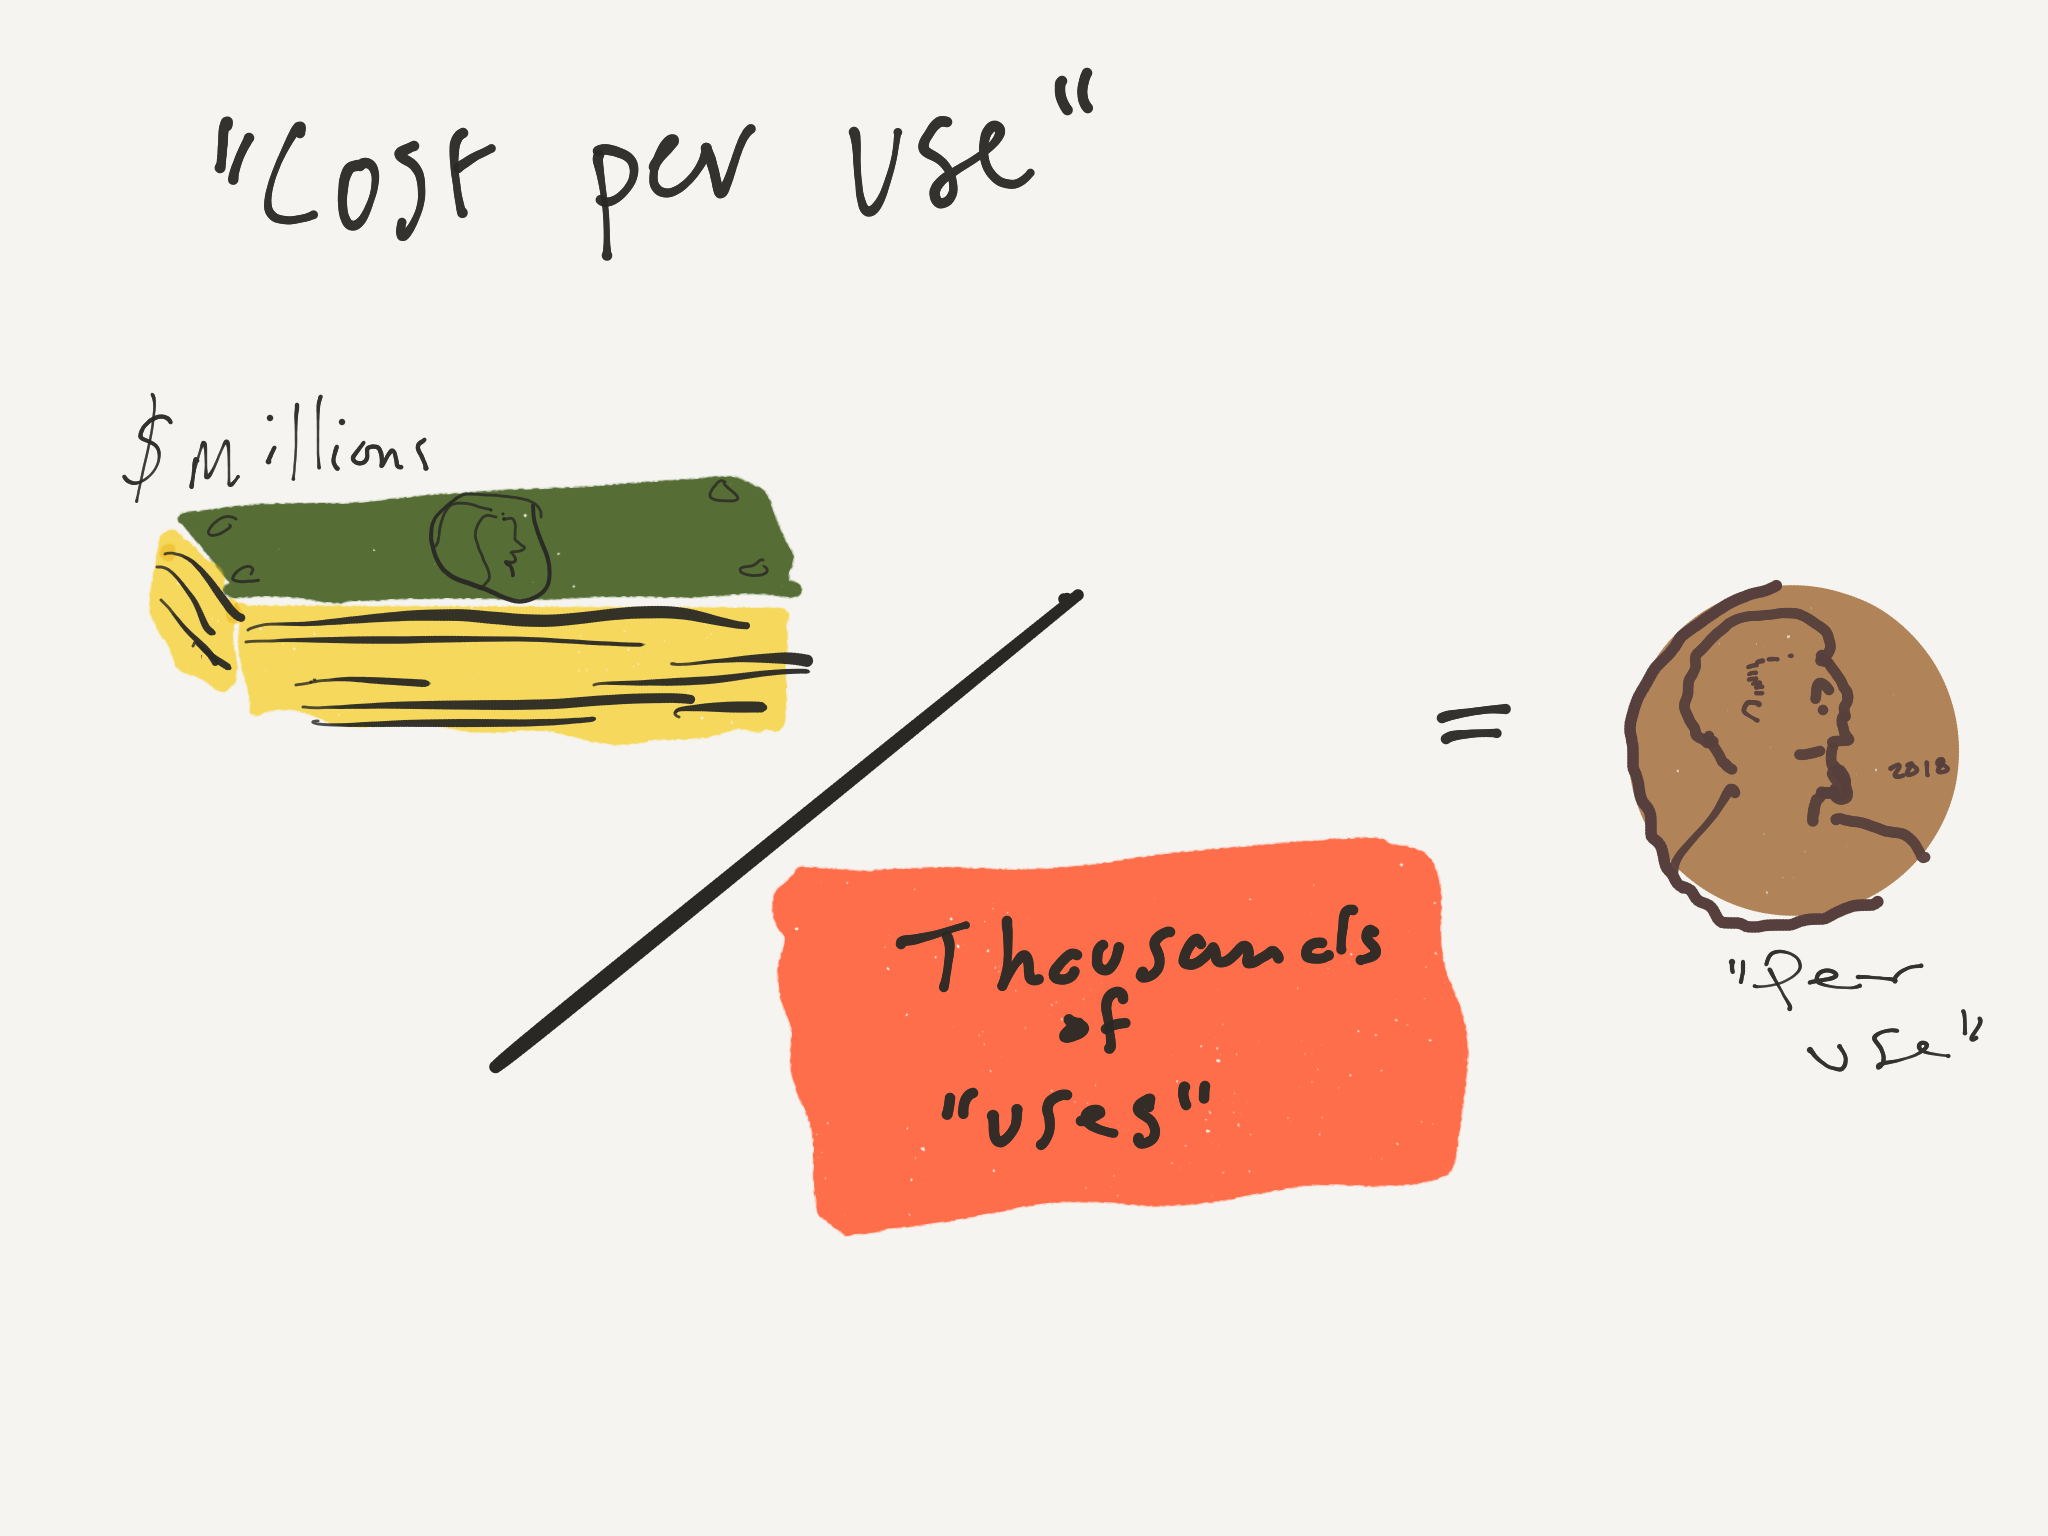 "Cost per use"
$Millions
Thousands
of
"uses"
=
2018
"Per
use"